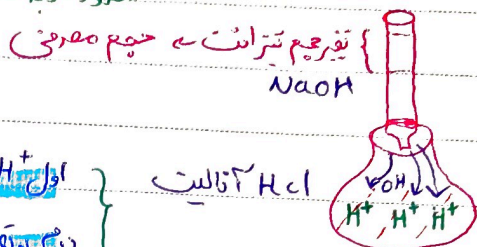 تغییر حجم تیترانت ← حجم مصرفی
NaOH
HCl آنالیت
اول H⁺
OH
H⁺ H⁺ H⁺